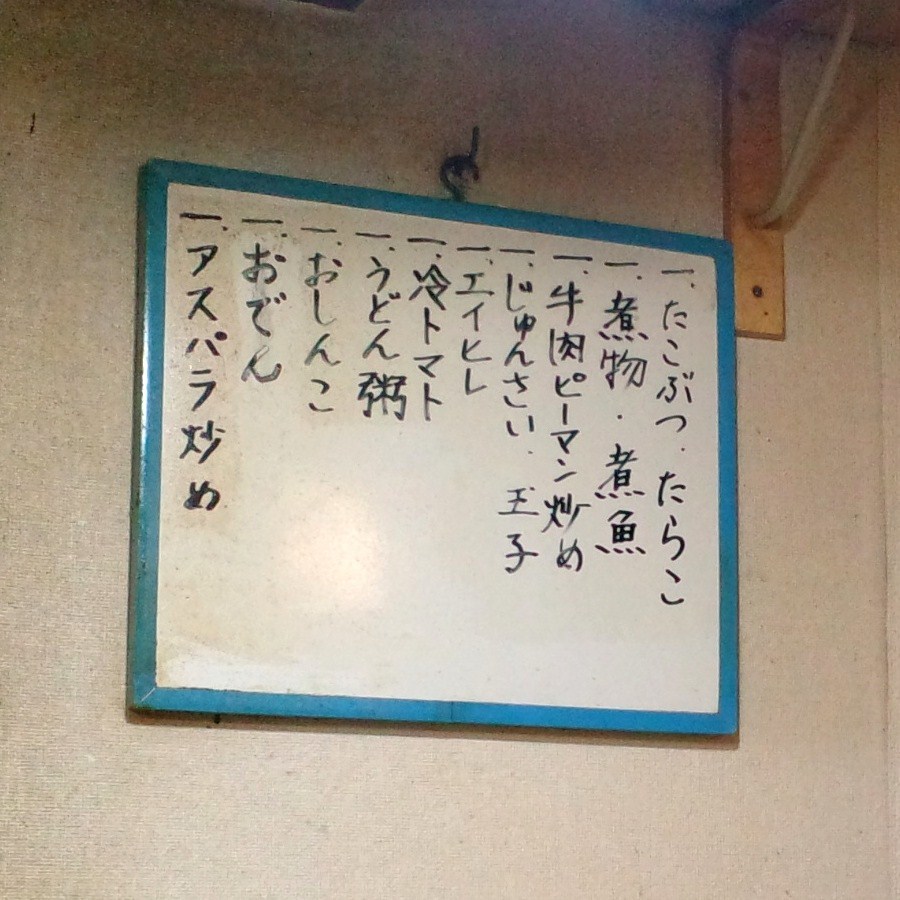 一、たこぶつ、たらこ
一、煮物・煮魚
一、牛肉ピーマン炒め
一、じゅんさい、玉子
一、エイヒレ
一、冷トマト
一、うどん粥
一、おしんこ
一、おでん
一、アスパラ炒め